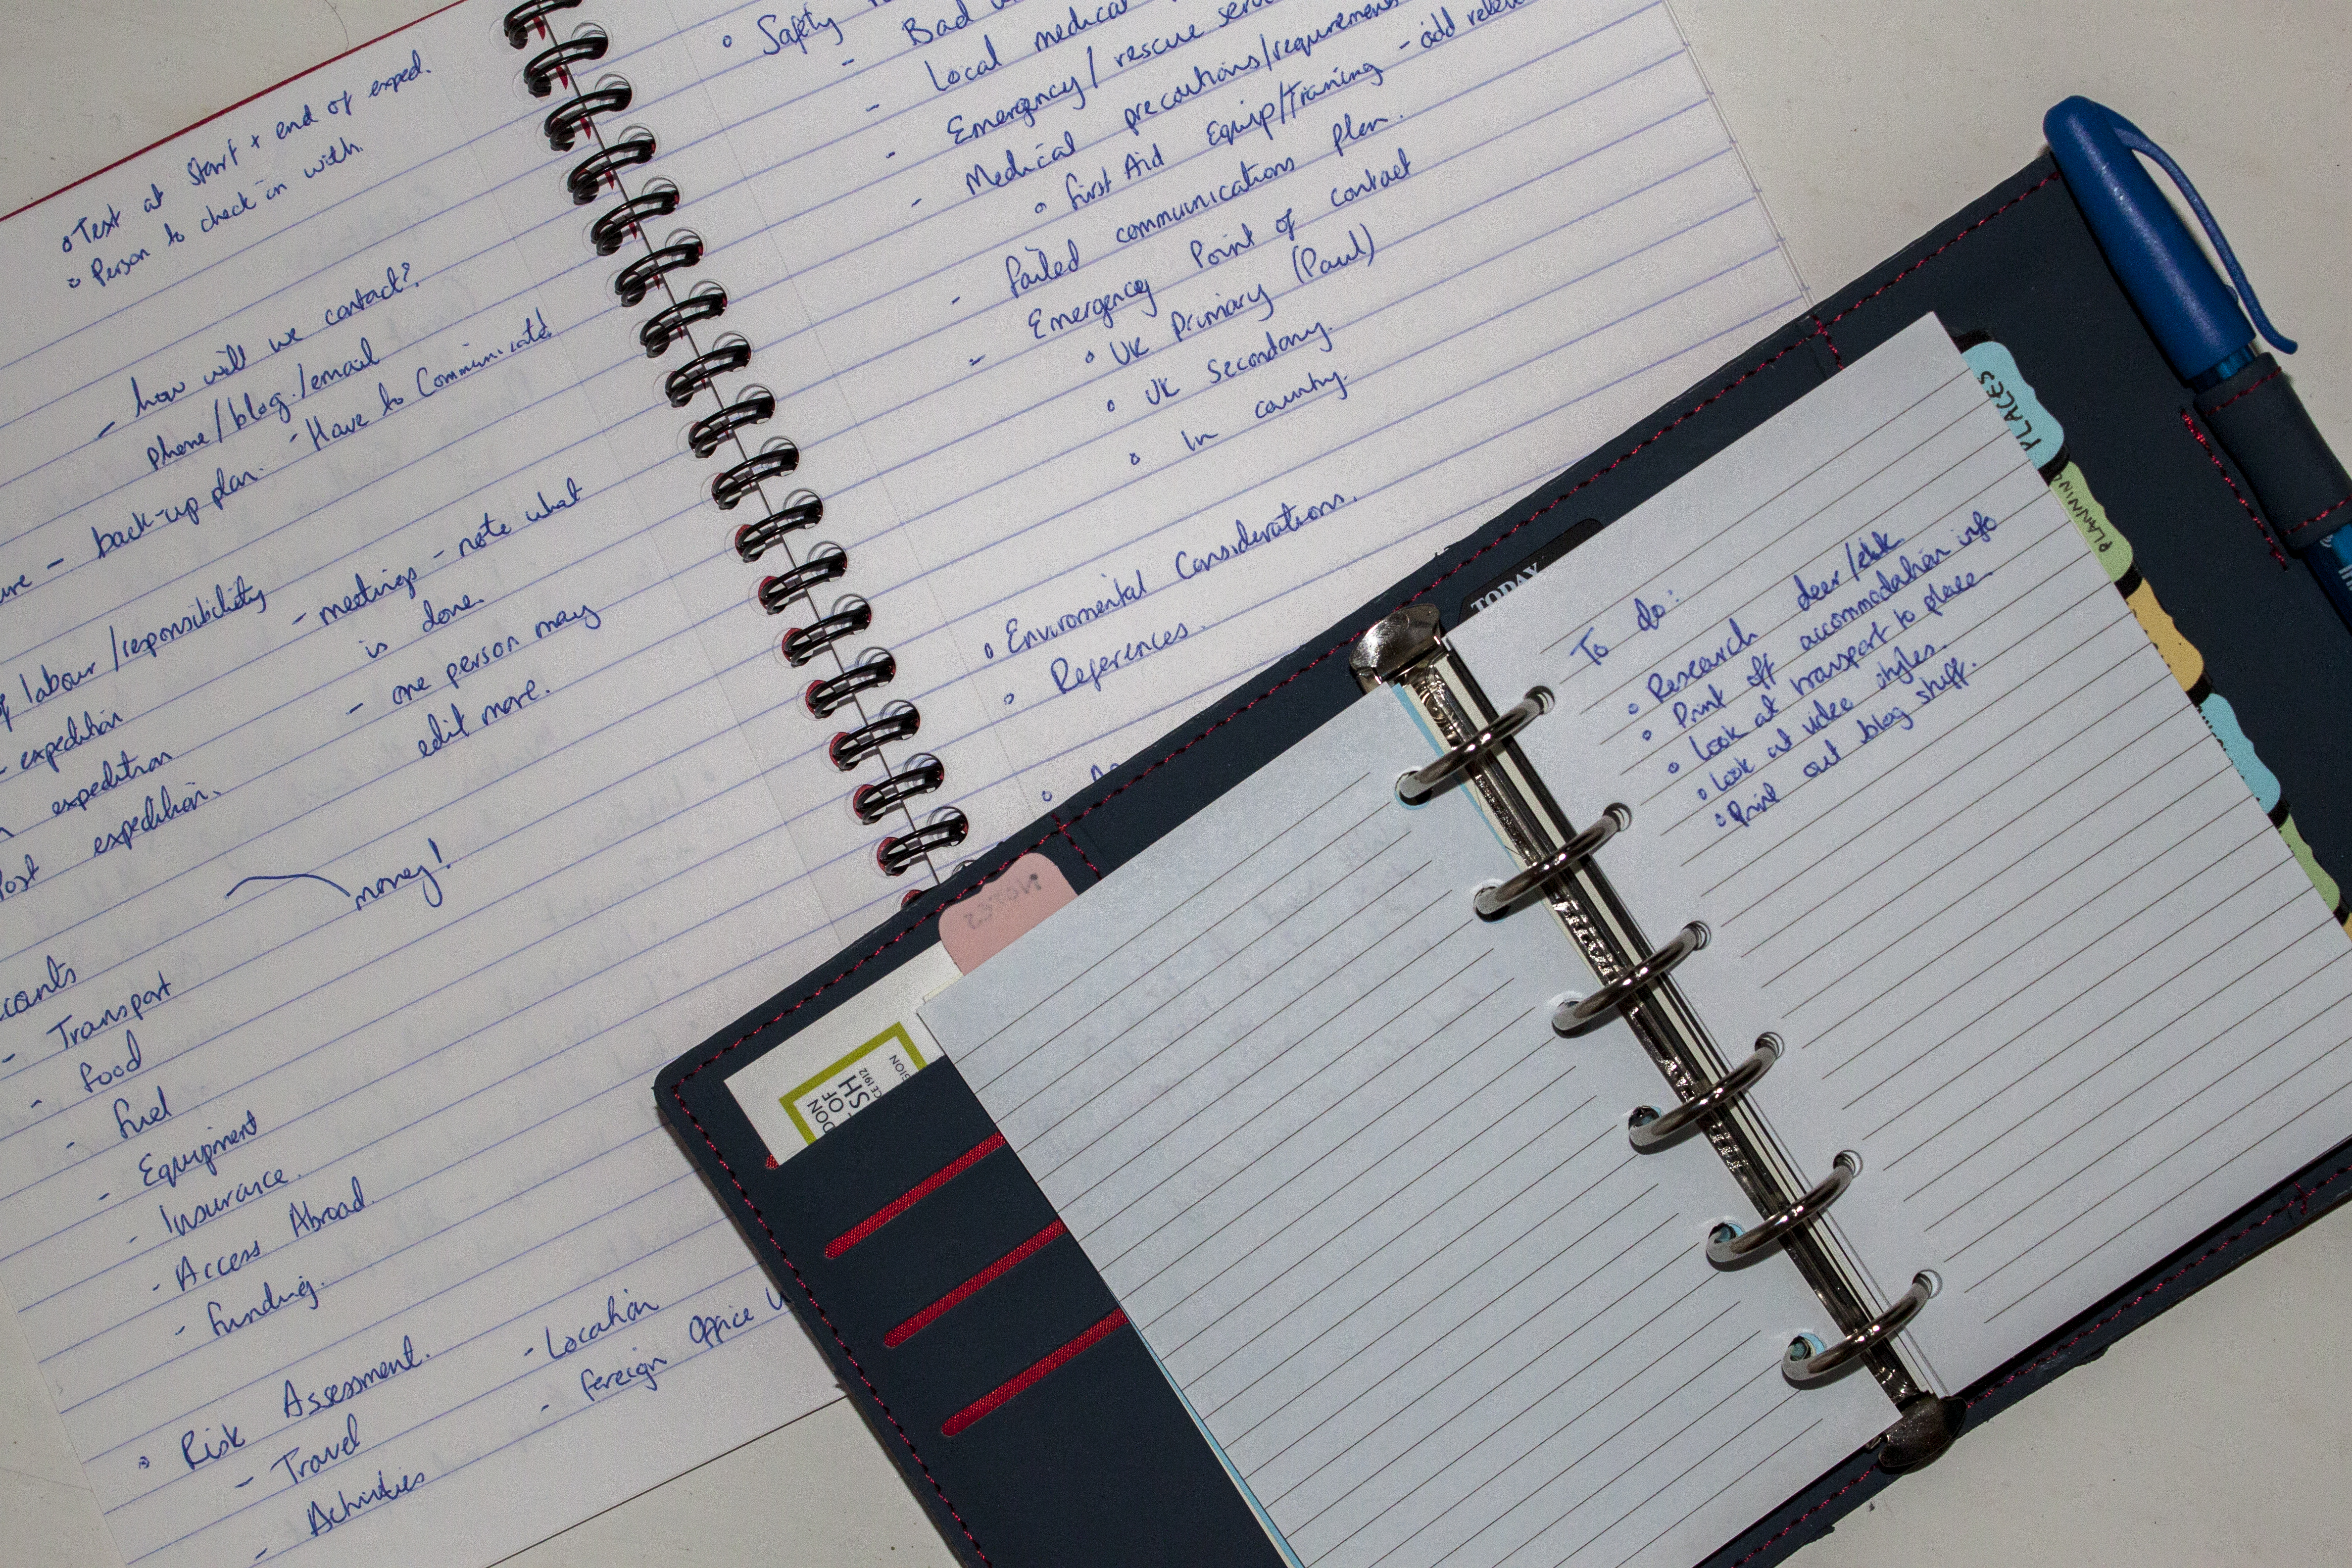 • Text at start + end of exped.
• Person to check in with.
- how will we contact?
phone/blog./email
- back-up plan. - Have to Communicate!
labour/responsibility
- meetings - note what
is done.
- one person may
edit more.
expedition
expedition
Post expedition.
money!
- Transport
- Food
- Fuel
- Equipment
- Insurance.
- Access Abroad.
- Funding.
• Risk Assessment.
- Travel
- Activities
- Location
- Foreign Office
• Safety
- Bad
- Local medical
- Emergency/rescue
- Medical precautions/requirements
• First Aid Equip/Training - add
- Failed communications plan.
- Emergency Point of contact
• UK Primary (Paul)
• UK Secondary.
• In country.
• Enviromental Considerations.
• References.
NOTES
TODAY
PLACES
PLANNING
To do:
• Research deer/elk
• Print off accommodation info
• Look at transport to place
• Look at video styles.
• Print out blog stuff.
SH
OF
DON
CE 1912
SION